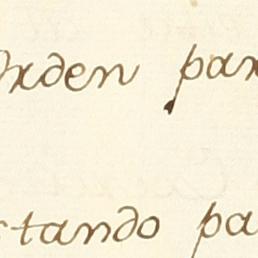 Orden par
stando pa